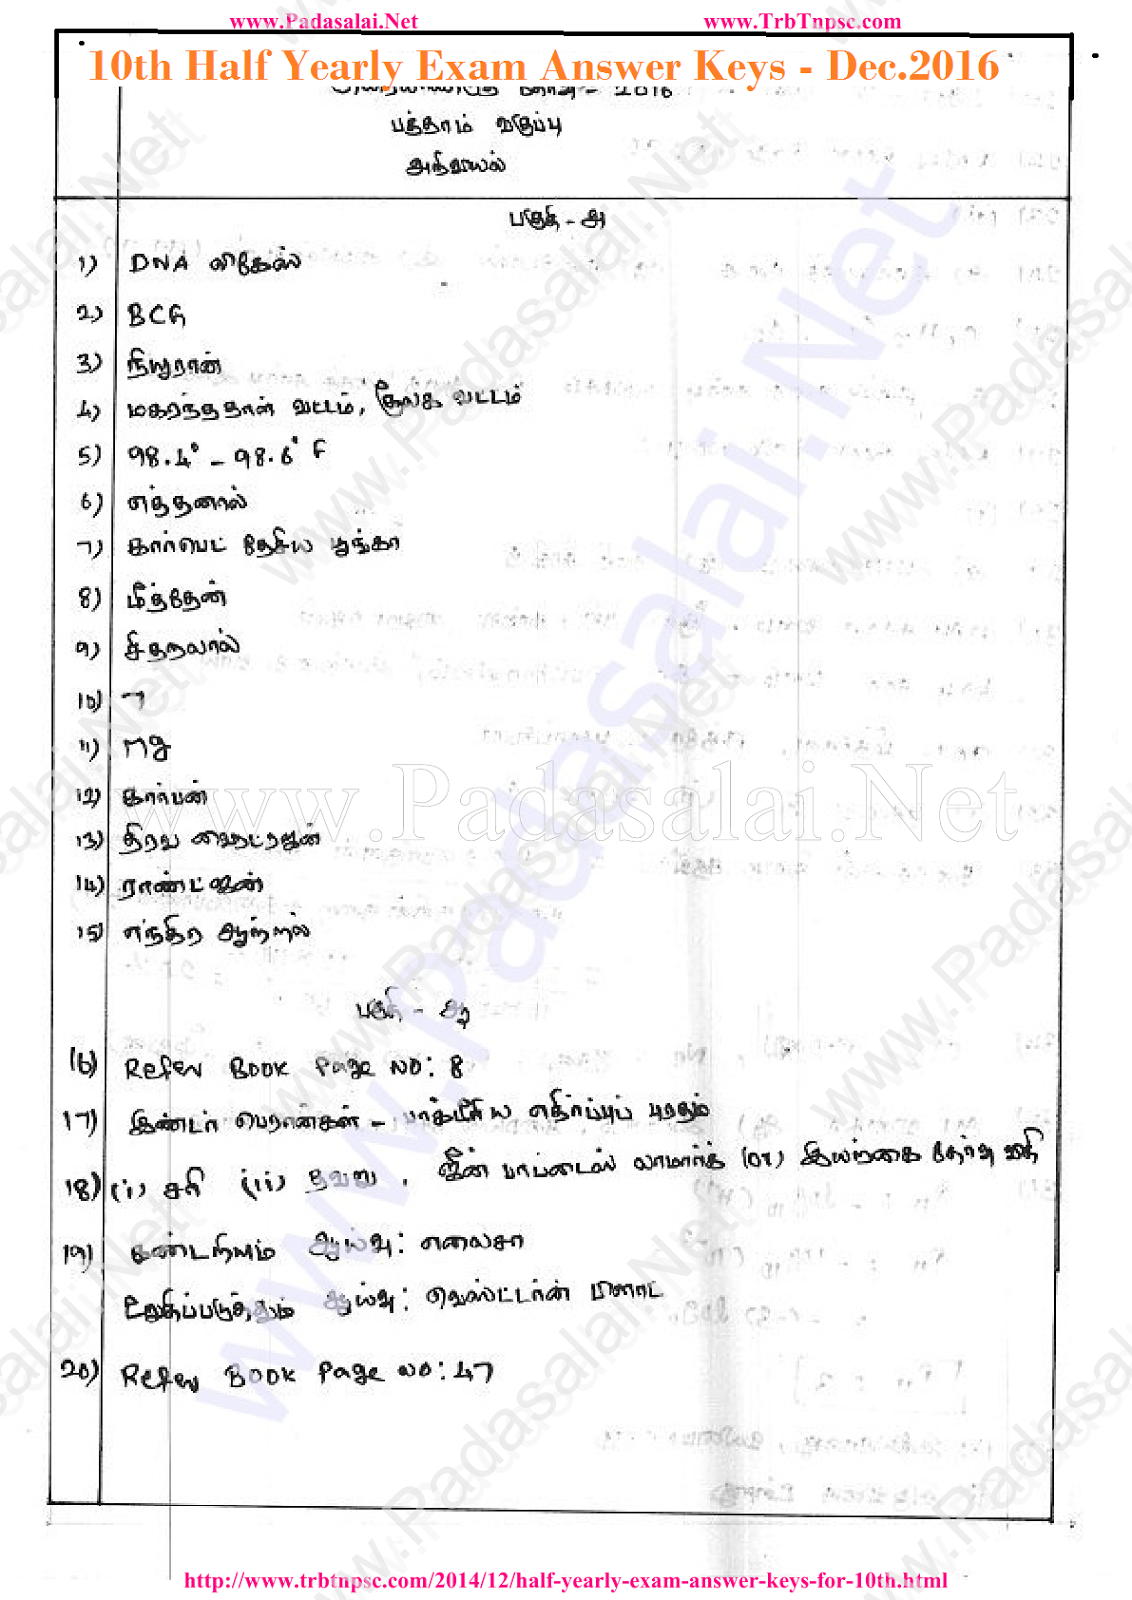 www.Padasalai.Net www.TrbTnpsc.com
10th Half Yearly Exam Answer Keys - Dec.2016
அரையாண்டு தேர்வு - 2016
பத்தாம் வகுப்பு
அறிவியல்
பகுதி - அ
1) DNA லிகேஸ்
2) BCG
3) நியூரான்
4) மகரந்ததாள் வட்டம், சூலக வட்டம்
5) 98.4° - 98.6° F
6) எத்தனால்
7) கார்பெட் தேசிய பூங்கா
8) மீத்தேன்
9) சிதறலால்
10) 7
11) Mg
12) கார்பன்
13) திரவ ஹைட்ரஜன்
14) ராண்ட்ஜன்
15) எந்திர ஆற்றல்
பகுதி - ஆ
16) Refer Book Page NO: 8
17) இண்டர் பெரான்கள் - பாக்டீரிய எதிர்ப்புப் புரதம்
18) (i) சரி (ii) தவறு, ஜீன் பாப்டைஸ் லாமார்க் (or) இயற்கை தேர்வு விதி
19) கண்டறியும் ஆய்வு: எலைசா
உறுதிப்படுத்தும் ஆய்வு: வெஸ்ட்டர்ன் பிளாட்
20) Refer Book Page NO: 47
www.Padasalai.Net
http://www.trbtnpsc.com/2014/12/half-yearly-exam-answer-keys-for-10th.html